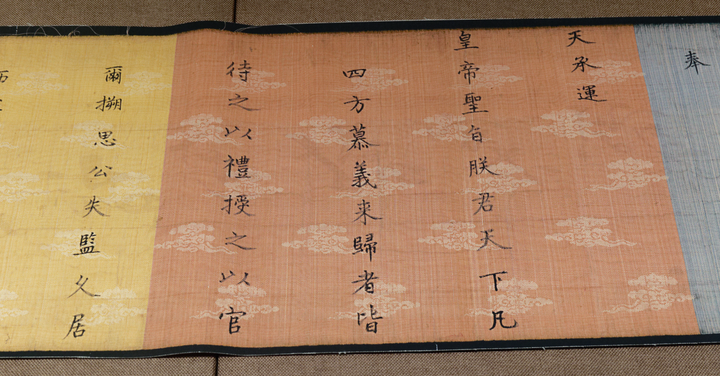 奉
天承運
皇帝聖旨朕君天下凡
四方慕義来歸者皆
待之以禮授之以官
爾搠思公失監久居